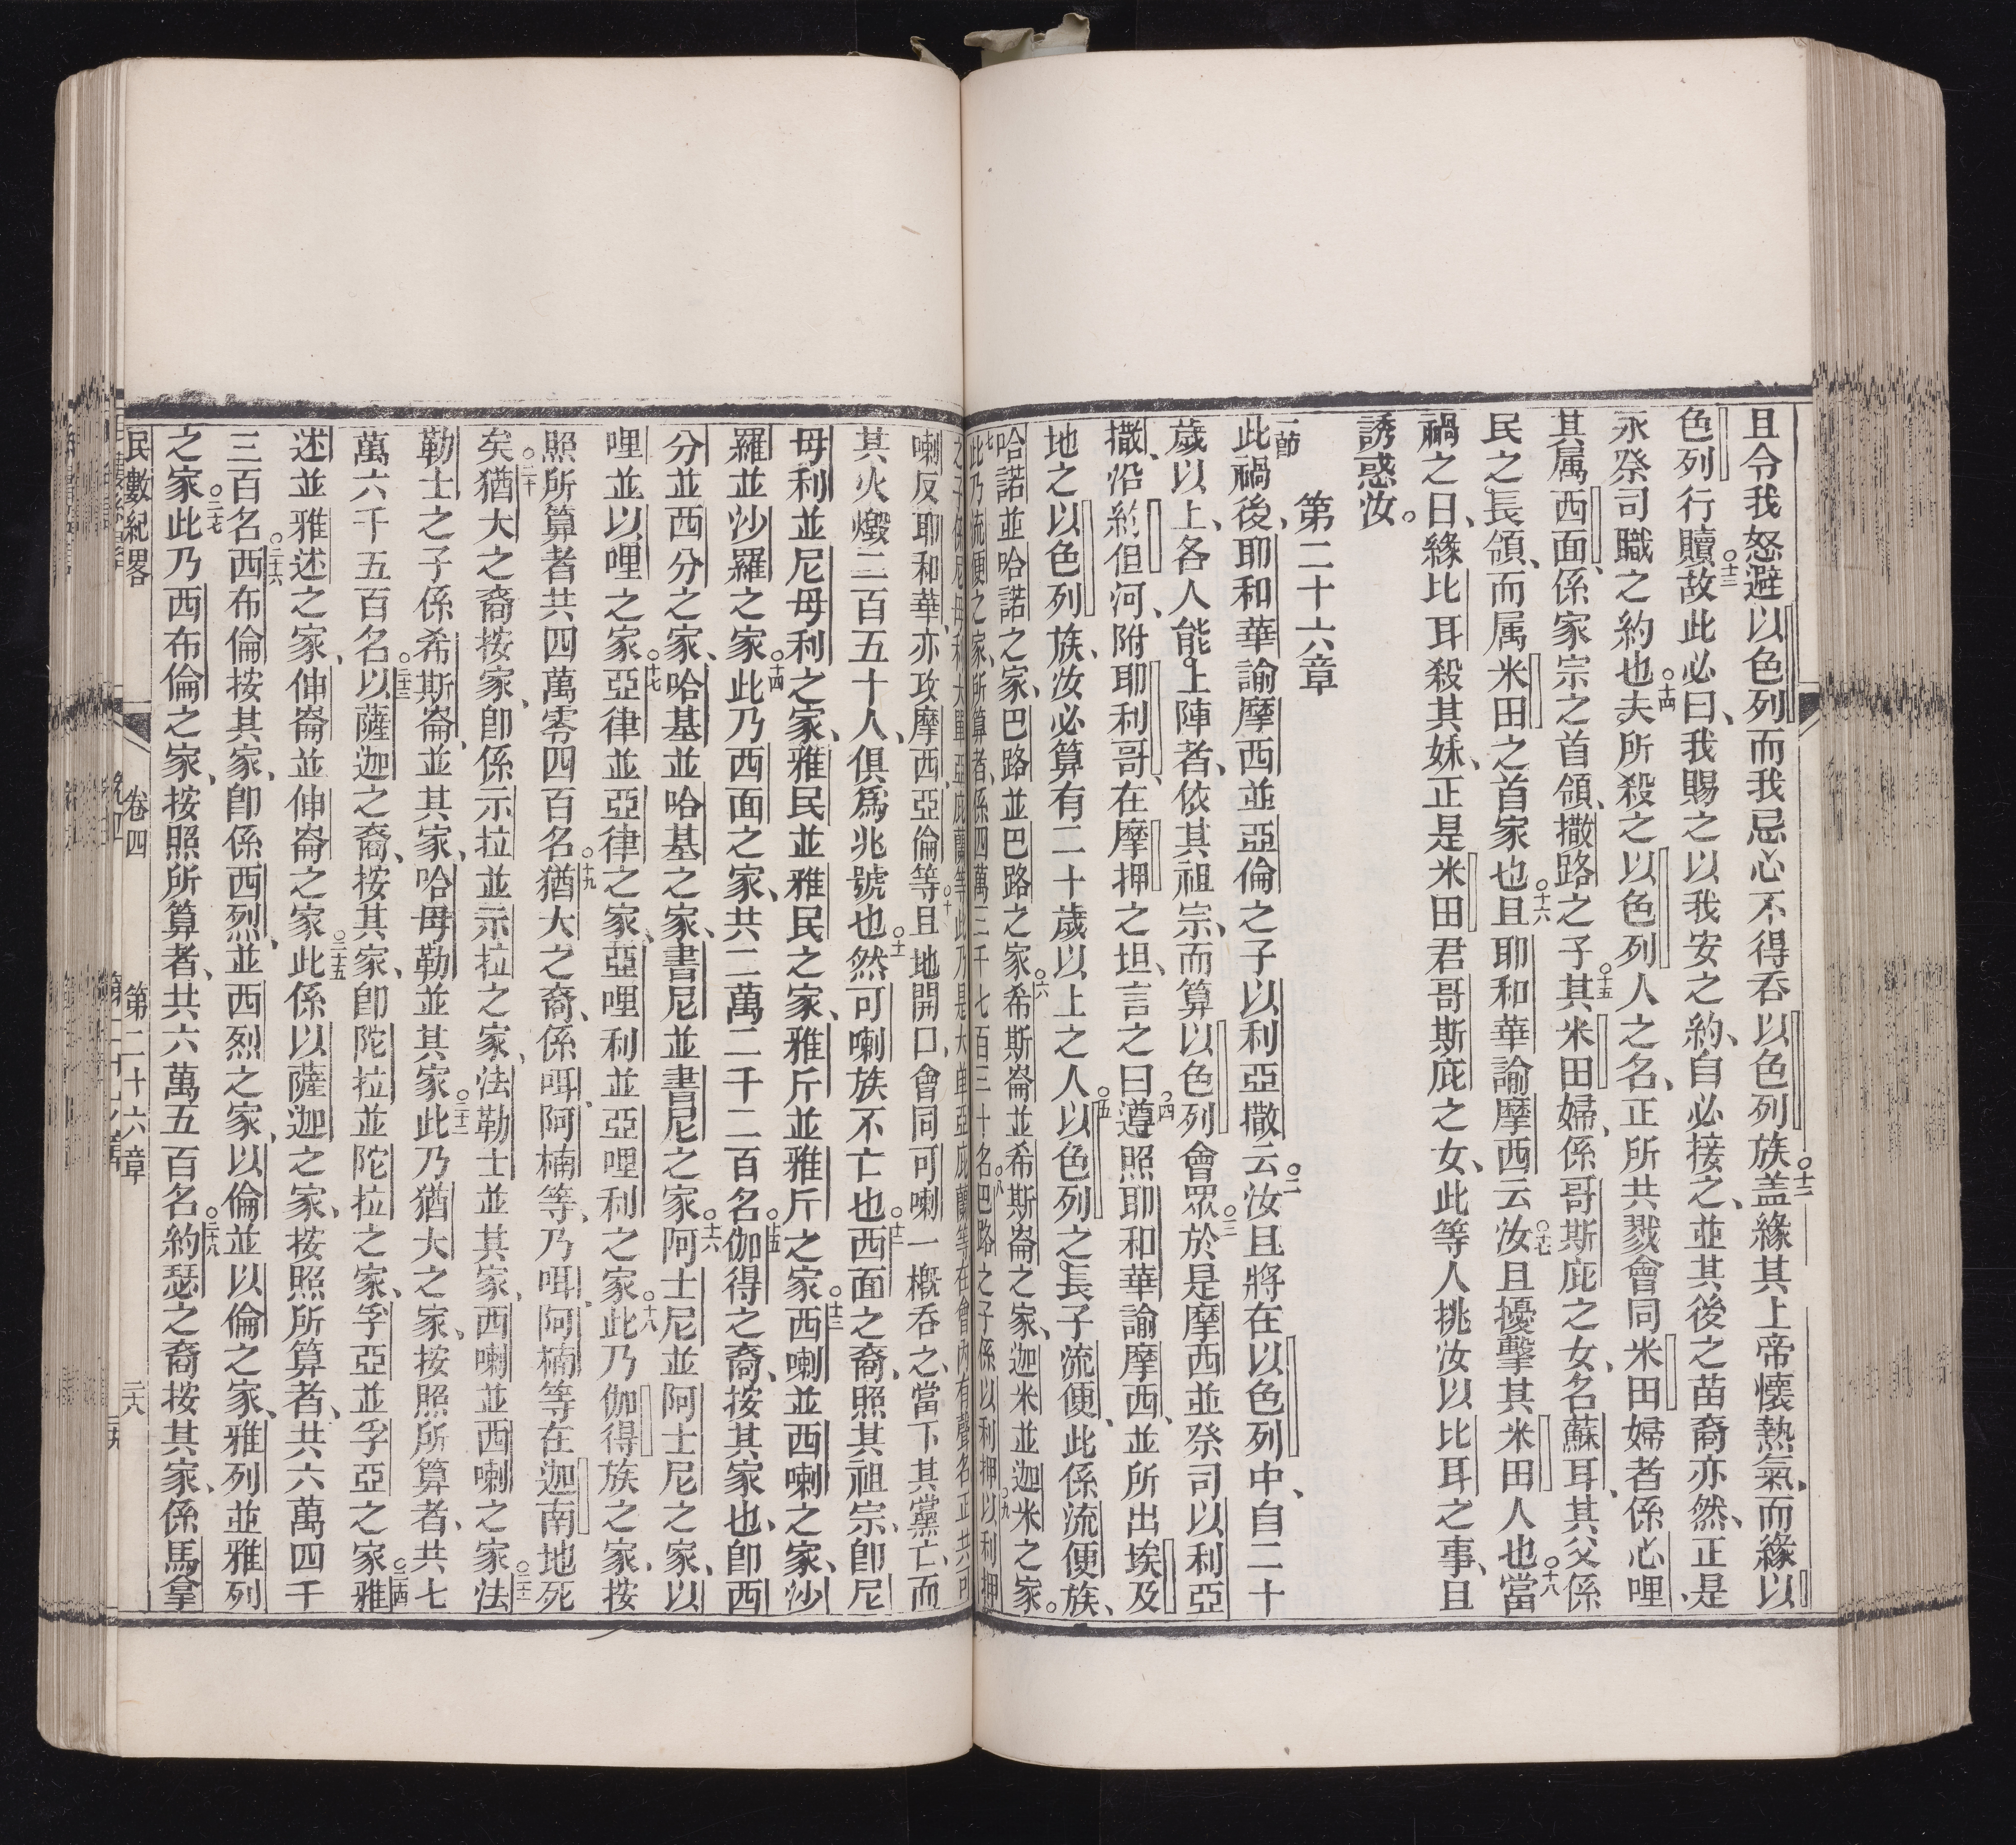 且令我怒避以色列而我忌心不得吞以色列族○十二盖緣其上帝懷熱氣而緣以
色列行贖○十三故此必曰、我賜之以我安之約、自必接之、並其後之苗裔亦然、正是
永祭司職之約也○十四夫所殺之以色列人之名、正所共戮會同米田婦者係心哩
其属西面、係家宗之首領、撒路之子○十五其米田婦、係哥斯庇之女、名蘇耳、其父係
民之長領、而属米田之首家也○十六且耶和華諭摩西云○十七汝且擾擊其米田人也○十八當
禍之日、緣比耳殺其妹、正是米田君哥斯庇之女、此等人挑汝以比耳之事、且
誘惑汝。
第二十六章
一節此禍後、耶和華諭摩西並亞倫之子以利亞撒云○二汝且將在以色列中、自二十
歲以上、各人能上陣者、依其祖宗、而算以色列會眾○三於是摩西並祭司以利亞
撒、沿約但河、附耶利哥、在摩押之坦、言之曰○四遵照耶和華諭摩西、並所出埃及
地之以色列族、汝必算有二十歲以上之人○五以色列之長子流便、此係流便族、
哈諾並哈諾之家、巴路並巴路之家○六希斯崙並希斯崙之家、迦米並迦米之家。
○七此乃流便之家、所算者、係四萬三千七百三十名○八巴路之子係以利押○九以利押
之子係尼母利大單亞庇蘭等、此乃是大單亞庇蘭等在會內有聲名、正共可
喇反耶和華、亦攻摩西、亞倫等○十且地開口、會同可喇一概吞之、當下其黨亡、而
其火燬二百五十人、俱爲兆號也○十一然可喇族不亡也○十二西面之裔、照其祖宗、卽尼
母利並尼母利之家、雅民並雅民之家、雅斤並雅斤之家○十三西喇並西喇之家、沙
羅並沙羅之家○十四此乃西面之家、共二萬二千二百名○十五伽得之裔、按其家也、卽西
分並西分之家、哈基並哈基之家、書尼並書尼之家○十六阿士尼並阿士尼之家、以
哩並以哩之家○十七亞律並亞律之家、亞哩利並亞哩利之家○十八此乃伽得族之家、按
照所算者共四萬零四百名○十九猶大之裔、係咡、阿楠等、乃咡、阿楠等在迦南地死
矣○二十猶大之裔按家、卽係示拉並示拉之家、法勒士並其家、西喇並西喇之家○二十一法
勒士之子係希斯崙、並其家、哈母勒並其家○二十二此乃猶大之家、按照所算者、共七
萬六千五百名○二十三以薩迦之裔、按其家、卽陀拉並陀拉之家、孚亞並孚亞之家○二十四雅
述並雅述之家、伸崙並伸崙之家○二十五此係以薩迦之家、按照所算者、共六萬四千
三百名○二十六西布倫按其家、卽係西烈、並西烈之家、以倫並以倫之家、雅列並雅列
之家○二十七此乃西布倫之家、按照所算者、共六萬五百名○二十八約瑟之裔按其家、係馬拿
民數紀畧 卷四 第二十六章 三十八